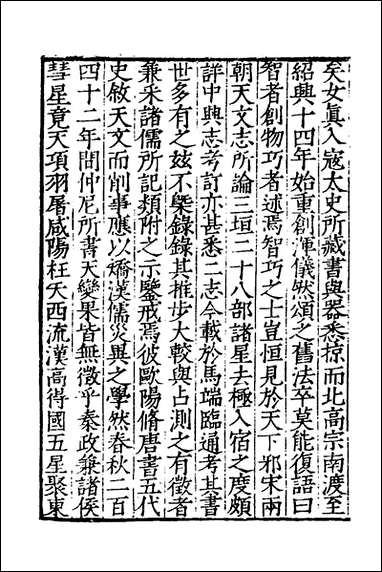 矣女真入寇太史所藏書與器悉掠而北高宗南渡至
紹興十四年始重創渾儀然頌之舊法卒莫能復語曰
智者創物巧者述焉智巧之士豈恒見於天下邪宋兩
朝天文志所論三垣二十八部諸星去極入宿之度頗
詳中興志考訂亦甚悉二志今載於馬端臨通考其書
世多有之玆不槩錄錄其推步大較與占測之有徵者
兼采諸儒所記類附之示鑒戒焉彼歐陽脩唐書五代
史敘天文而削事應以矯漢儒災異之學然春秋二百
四十二年間仲尼所書天變果皆無徵乎秦政兼諸侯
彗星竟天項羽屠咸陽枉矢西流漢高得國五星聚東